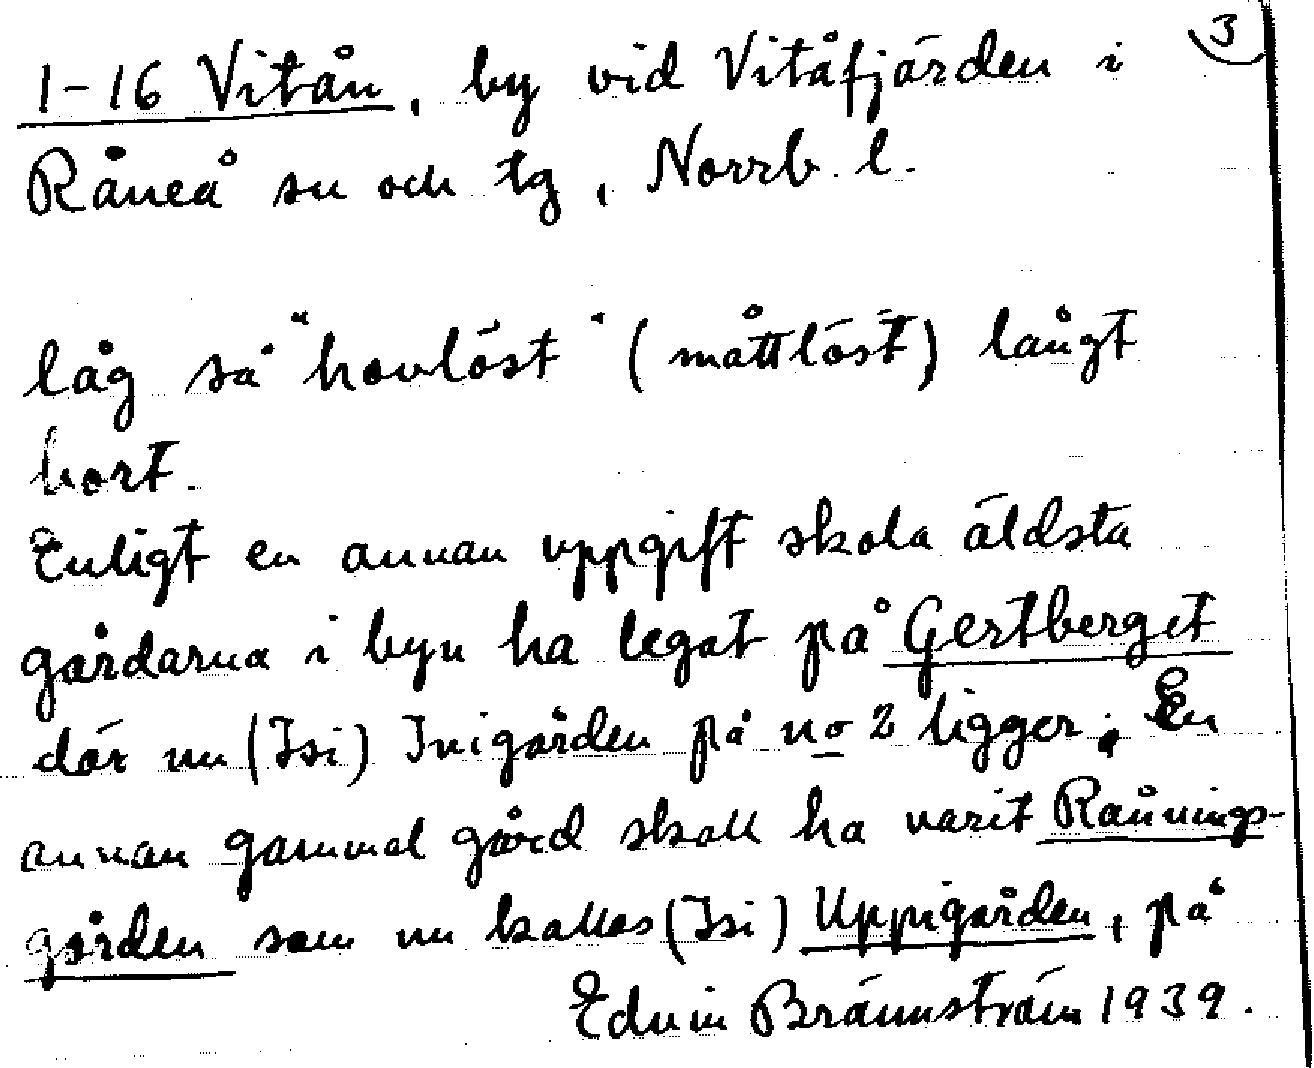 3
1-16 Vitån, by vid Vitåfjärden i
Råneå sn och tg, Norrb. l.
låg så "hovlöst" (måttlöst) långt
bort.
Enligt en annan uppgift skola äldsta
gårdarna i byn ha legat på Gertberget
där nu (Isi) Inigården på no 2 ligger. En
annan gammal gård skall ha varit Rånnings-
gården som nu kallas (Isi) Uppigården, på
Edvin Brännström 1939.